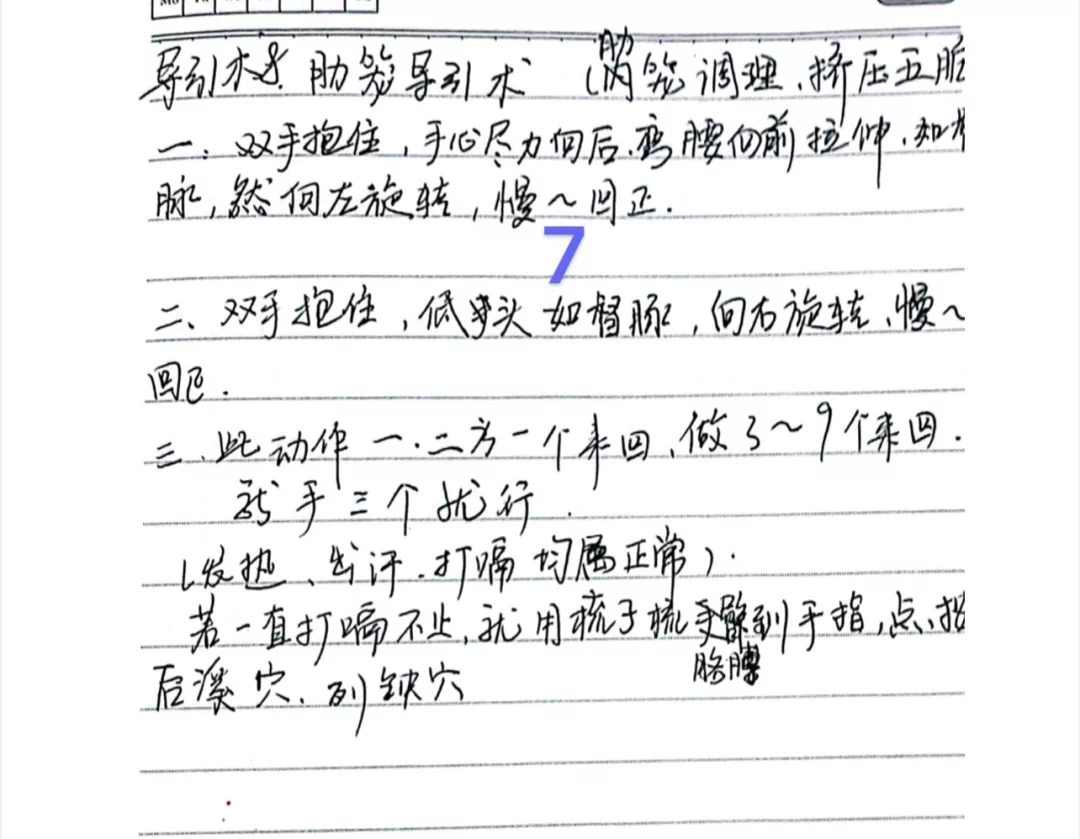 导引术8. 肋笼导引术 (肋笼调理、挤压五脏
一:双手抱住,手心尽力向后.弯腰向前拉伸.如
脉,然向左旋转,慢~回正.
7
二、双手抱住,低头如督脉,向右旋转、慢~
回正.
三、此动作一.二为一个来回、做3~9个来回.
新手三个就行.
(发热、出汗.打嗝均属正常).
若一直打嗝不止,就用梳子梳胳膊到手指,点、按
后溪穴、列缺穴